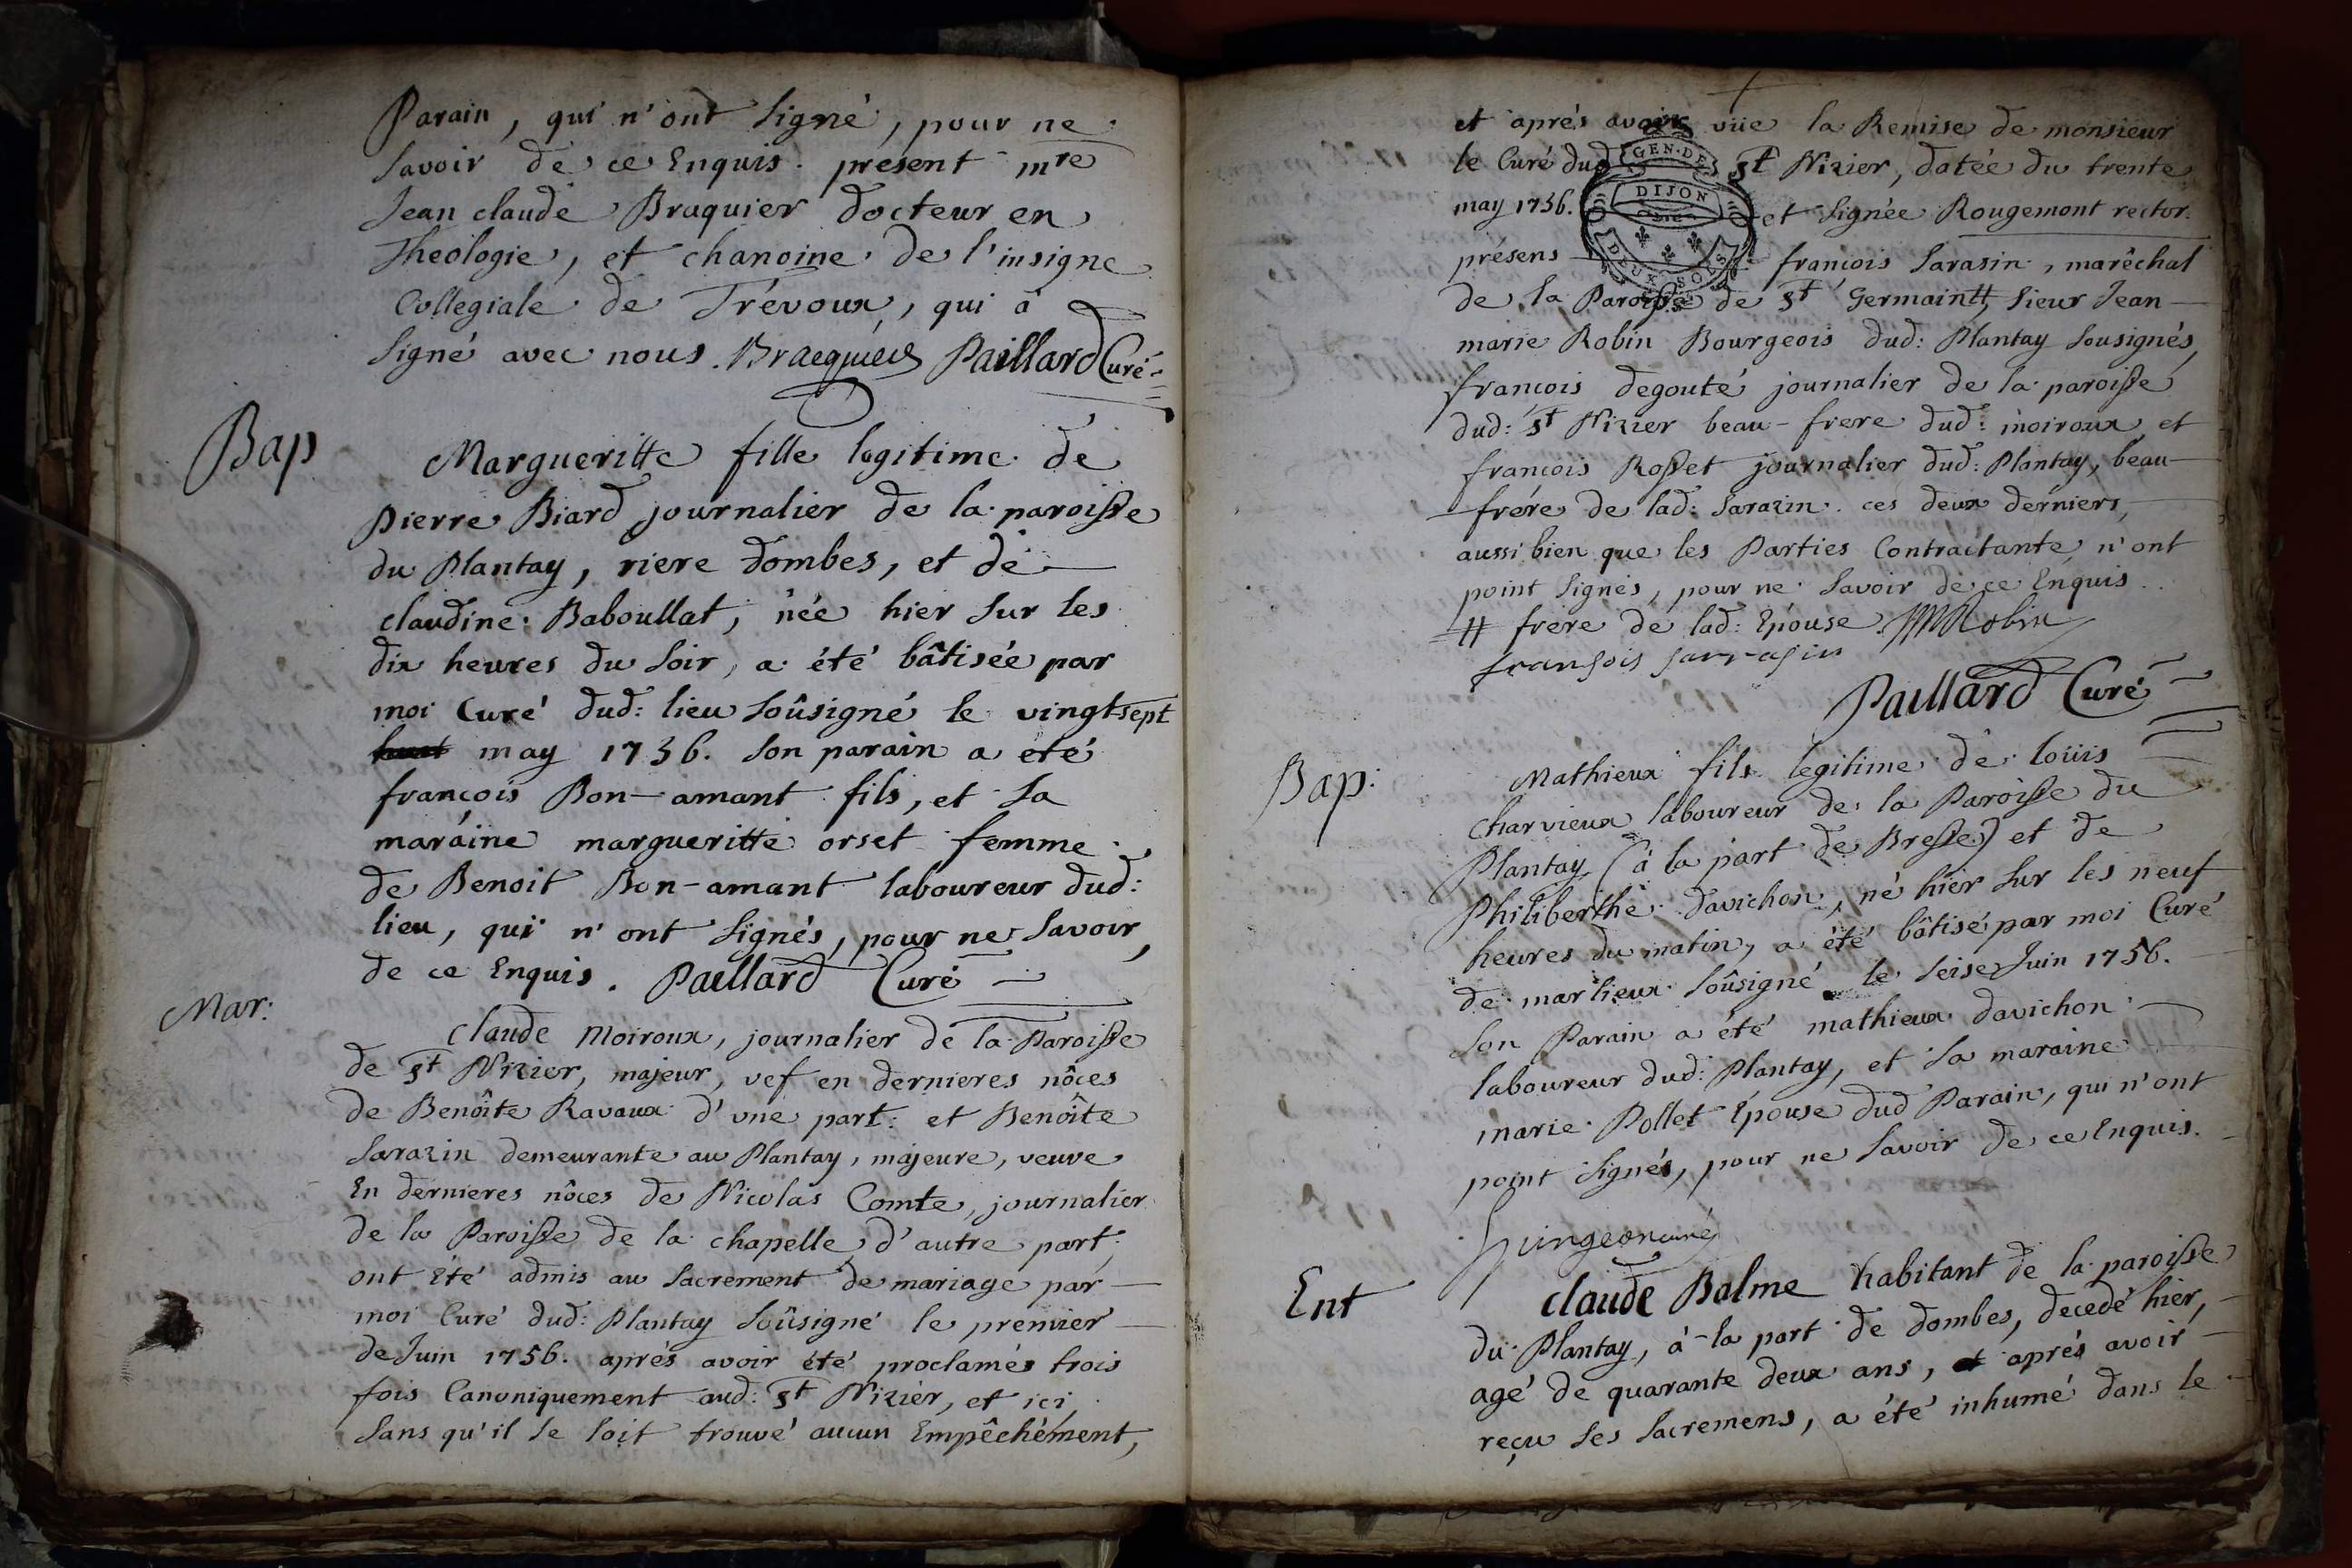 Parain, qui n'ont signé, pour ne
savoir de ce Enquis. présent mre
Jean claude Braquier docteur en
Theologie, et chanoine de l'insigne
Collegiale de Trévoux, qui a
signé avec nous. Bracquier Paillard Curé
Bap
Margueritte fille legitime de
pierre Biard journalier de la paroisse
du Plantay, riere dombes, et de
claudine Baboullat, née hier sur les
dix heures du soir, a été bâtisée par
moi Curé dud: lieu soûsigné le vingt sept
may 1756. son parain a été
françois Bon-amant fils, et sa
maraine margueritte orset femme
de Benoit Bon-amant laboureur dud:
lieu, qui n'ont signés, pour ne savoir,
de ce Enquis. Paillard Curé
Mar:
Claude Moiroux, journalier de la Paroisse
de st Nizier, majeur, vef en dernieres nôces
de Benoîte Ravaux d'une part: et Benoîte
Sarazin demeurante au Plantay, majeure, veuve
En dernieres nôces de Nicolas Comte, journalier
de la Paroisse de la chapelle d'autre part;
ont Eté admis au sacrement de mariage par
moi Curé dud: Plantay soûsigné le premier
de Juin 1756. aprés avoir été proclamés trois
fois Canoniquement aud: st Nizier, et ici,
sans qu'il se soit trouvé aucun Empêchement,
et aprés avoir vüe la Remise de monsieur
le Curé dud st Nizier, datée du trente
may 1756. et signée Rougemont rector.
GEN. DE
DIJON
DEUX SOLS
présens françois sarasin, marêchal
de la Paroisse de st Germain #, sieur Jean
marie Robin Bourgeois dud: Plantay sousignés,
françois degouté journalier de la paroisse
dud: st Nizier beau-frere dud: moiroux, et
françois Rosset journalier dud: Plantay, beau
frére de lad: sarazin. ces deux dérniers,
aussi bien que les Parties Contractante, n'ont
point signés, pour ne savoir de ce Enquis.
# frere de lad: Epouse. JM Robin
fransois sarrasin
Paillard Curé
Bap:
Mathieux fils legitime de loüis
Charvieux laboureur de la Paroisse du
Plantay (à la part de Bresse) et de
Philiberthe davichon, né hier sur les neuf
heures du matin, a été bâtisé par moi Curé
de marlieux soûsigné le seise Juin 1756.
son Parain a été mathieux davichon
laboureur dud: Plantay, et sa maraine
marie Pollet Epouse dud Parain, qui n'ont
point signés, pour ne savoir de ce Enquis.
curé
Ent
claude Balme habitant de la paroisse
du Plantay, à la part de dombes, decedé hier,
agé de quarante deux ans, et aprés avoir
reçu ses sacremens, a été inhumé dans le